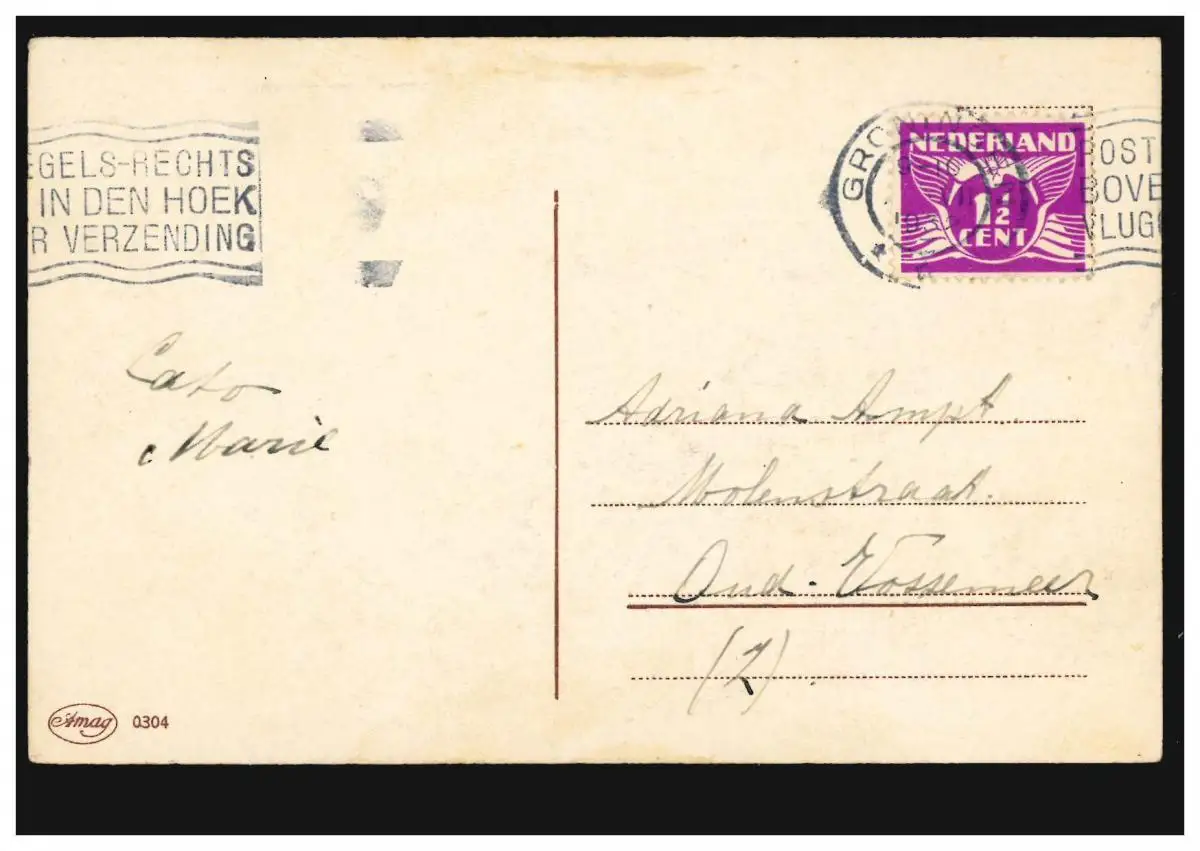 EGELS-RECHTS
IN DEN HOEK
R VERZENDING
GRONING
NEDERLAND
1½
CENT
POST
BOVE
VLUG
Cato
Marie
Adriana Ampt.
Molenstraat.
Oud-Vossemeer
(Z).
Amag 0304